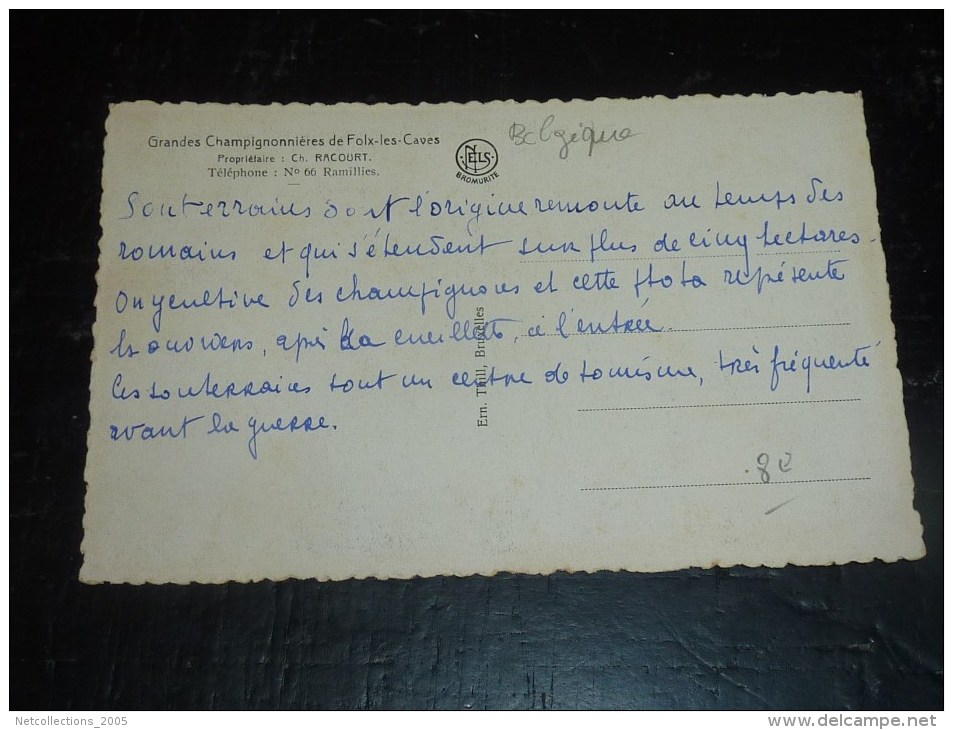 Grandes Champignonnières de Folx-les-Caves
Propriétaire : Ch. RACOURT.
Téléphone : No 66 Ramillies.
NELS
BROMURITE
Belgique
Souterrains dont l'origine remonte au temps des
romains et qui s'étendent sur plus de cinq hectares.
On y cultive des champignons et cette photo représente
les ouvriers, après la cueillette, à l'entrée.
Ces souterrains sont un centre de tourisme, très fréquenté
avant la guerre.
Ern. Thill, Bruxelles
8€
Netcollections_2005
http://www.delcampe.net